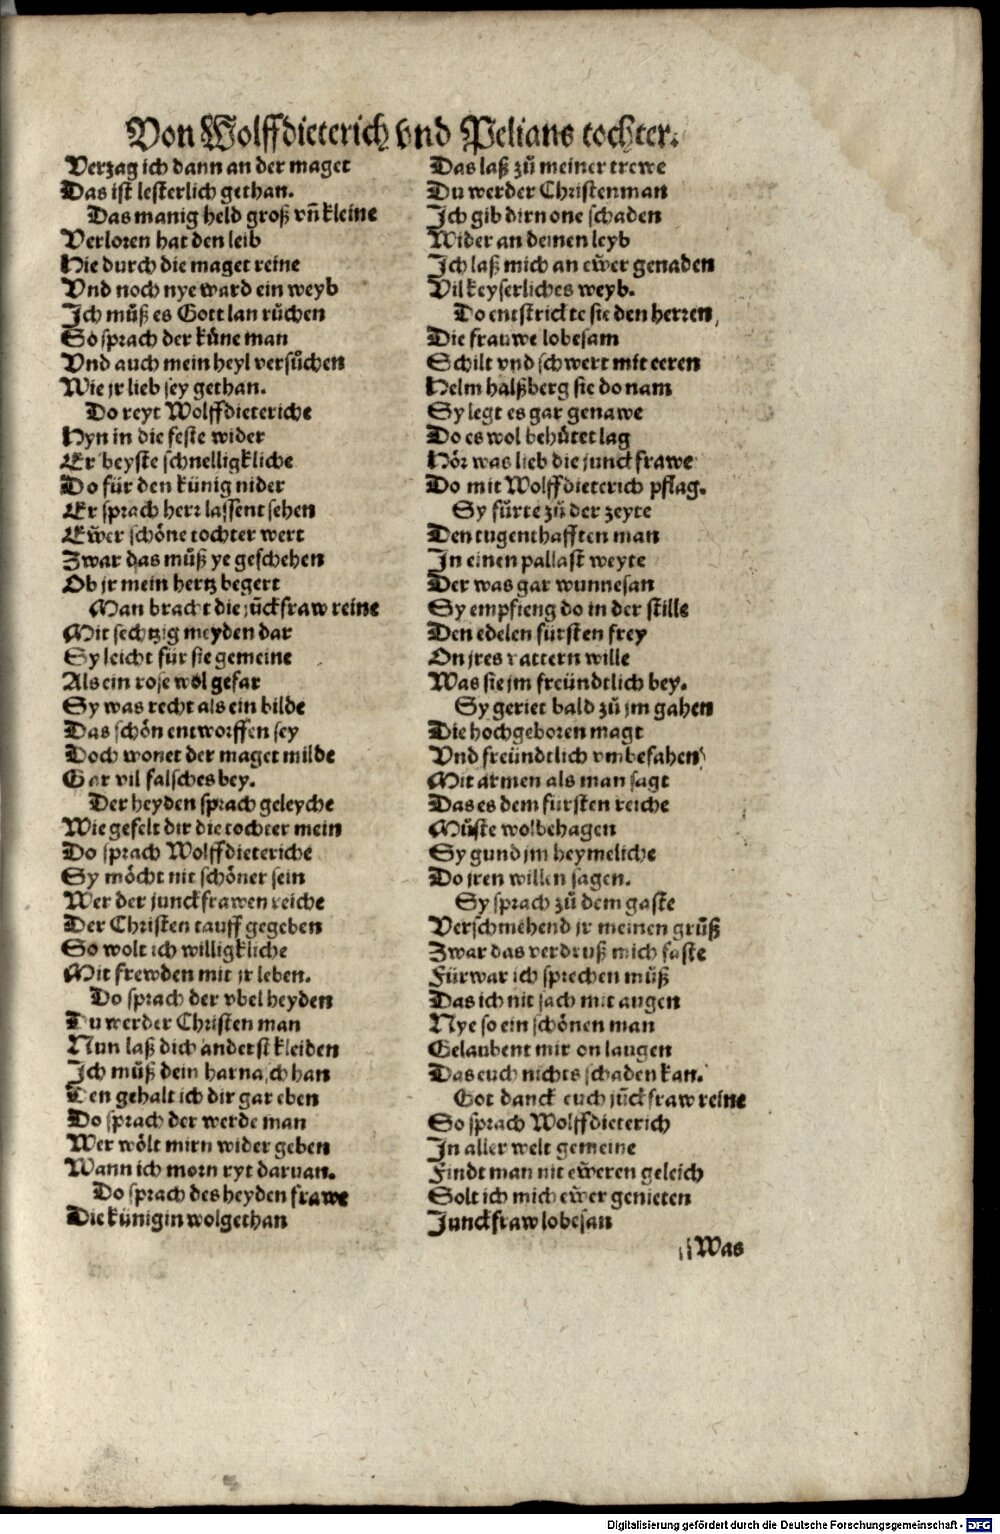 Von Wolffdieterich vnd Pelians tochter.
Verzag ich dann an der maget
Das ist lesterlich gethan.
Das manig held groß vñ kleine
Verloren hat den leib
Hie durch die maget reine
Vnd noch nye ward ein weyb
Ich můß es Gott lan růchen
So sprach der küne man
Vnd auch mein heyl versůchen
Wie jr lieb sey gethan.
Do reyt Wolffdieteriche
Hyn in die feste wider
Er beyste schnelligkliche
Do für den künig nider
Er sprach herr lassent sehen
Ewer schöne tochter wert
Zwar das můß ye geschehen
Ob jr mein hertz begert
Man bracht die jückfraw reine
Mit sechtzig meyden dar
Sy leicht für sie gemeine
Als ein rose wol gefar
Sy was recht als ein bilde
Das schön entworffen sey
Doch wonet der maget milde
Gar vil falsches bey.
Der heyden sprach geleyche
Wie gefelt dir die tochter mein
Do sprach Wolffdieteriche
Sy möcht nit schöner sein
Wer der junckfrawen reiche
Der Christen tauff gegeben
So wolt ich willigkliche
Mit frewden mit jr leben.
Do sprach der vbel heyden
Du werder Christen man
Nun laß dich anderst kleiden
Ich můß dein harnasch han
Den gehalt ich dir gar eben
Do sprach der werde man
Wer wölt mirn wider geben
Wann ich morn ryt daruan.
Do sprach des heyden frawe
Die künigin wolgethan
Das laß zů meiner trewe
Du werder Christenman
Ich gib dirn one schaden
Wider an deinen leyb
Ich laß mich an ewer genaden
Vil keyserliches weyb.
Do entstrickte sie den herren
Die frauwe lobesam
Schilt vnd schwert mit eeren
Helm halßberg sie do nam
Sy legt es gar genawe
Do es wol behůtet lag
Hör was lieb die junckfrawe
Do mit Wolffdieterich pflag.
Sy fürte zů der zeyte
Den tugenthafften man
In einen pallast weyte
Der was gar wunnesan
Sy empfieng do in der stille
Den edelen fürsten frey
On jres vattern wille
Was sie jm freündtlich bey.
Sy geriet bald zů jm gahen
Die hochgeboren magt
Vnd freündtlich vmbefahen
Mit armen als man sagt
Das es dem fürsten reiche
Můste wolbehagen
Sy gund jm heymeliche
Do jren willen sagen.
Sy sprach zů dem gaste
Verschmehend jr meinen grůß
Zwar das verdruß mich faste
Fürwar ich sprechen můß
Das ich nit sach mit augen
Nye so ein schönen man
Gelaubent mir on laugen
Das euch nichts schaden kan.
Got danck euch jückfraw reine
So sprach Wolffdieterich
In aller welt gemeine
Findt man nit eweren geleich
Solt ich mich ewer genieten
Junckfraw lobesan
Was
Digitalisierung gefördert durch die Deutsche Forschungsgemeinschaft - DFG